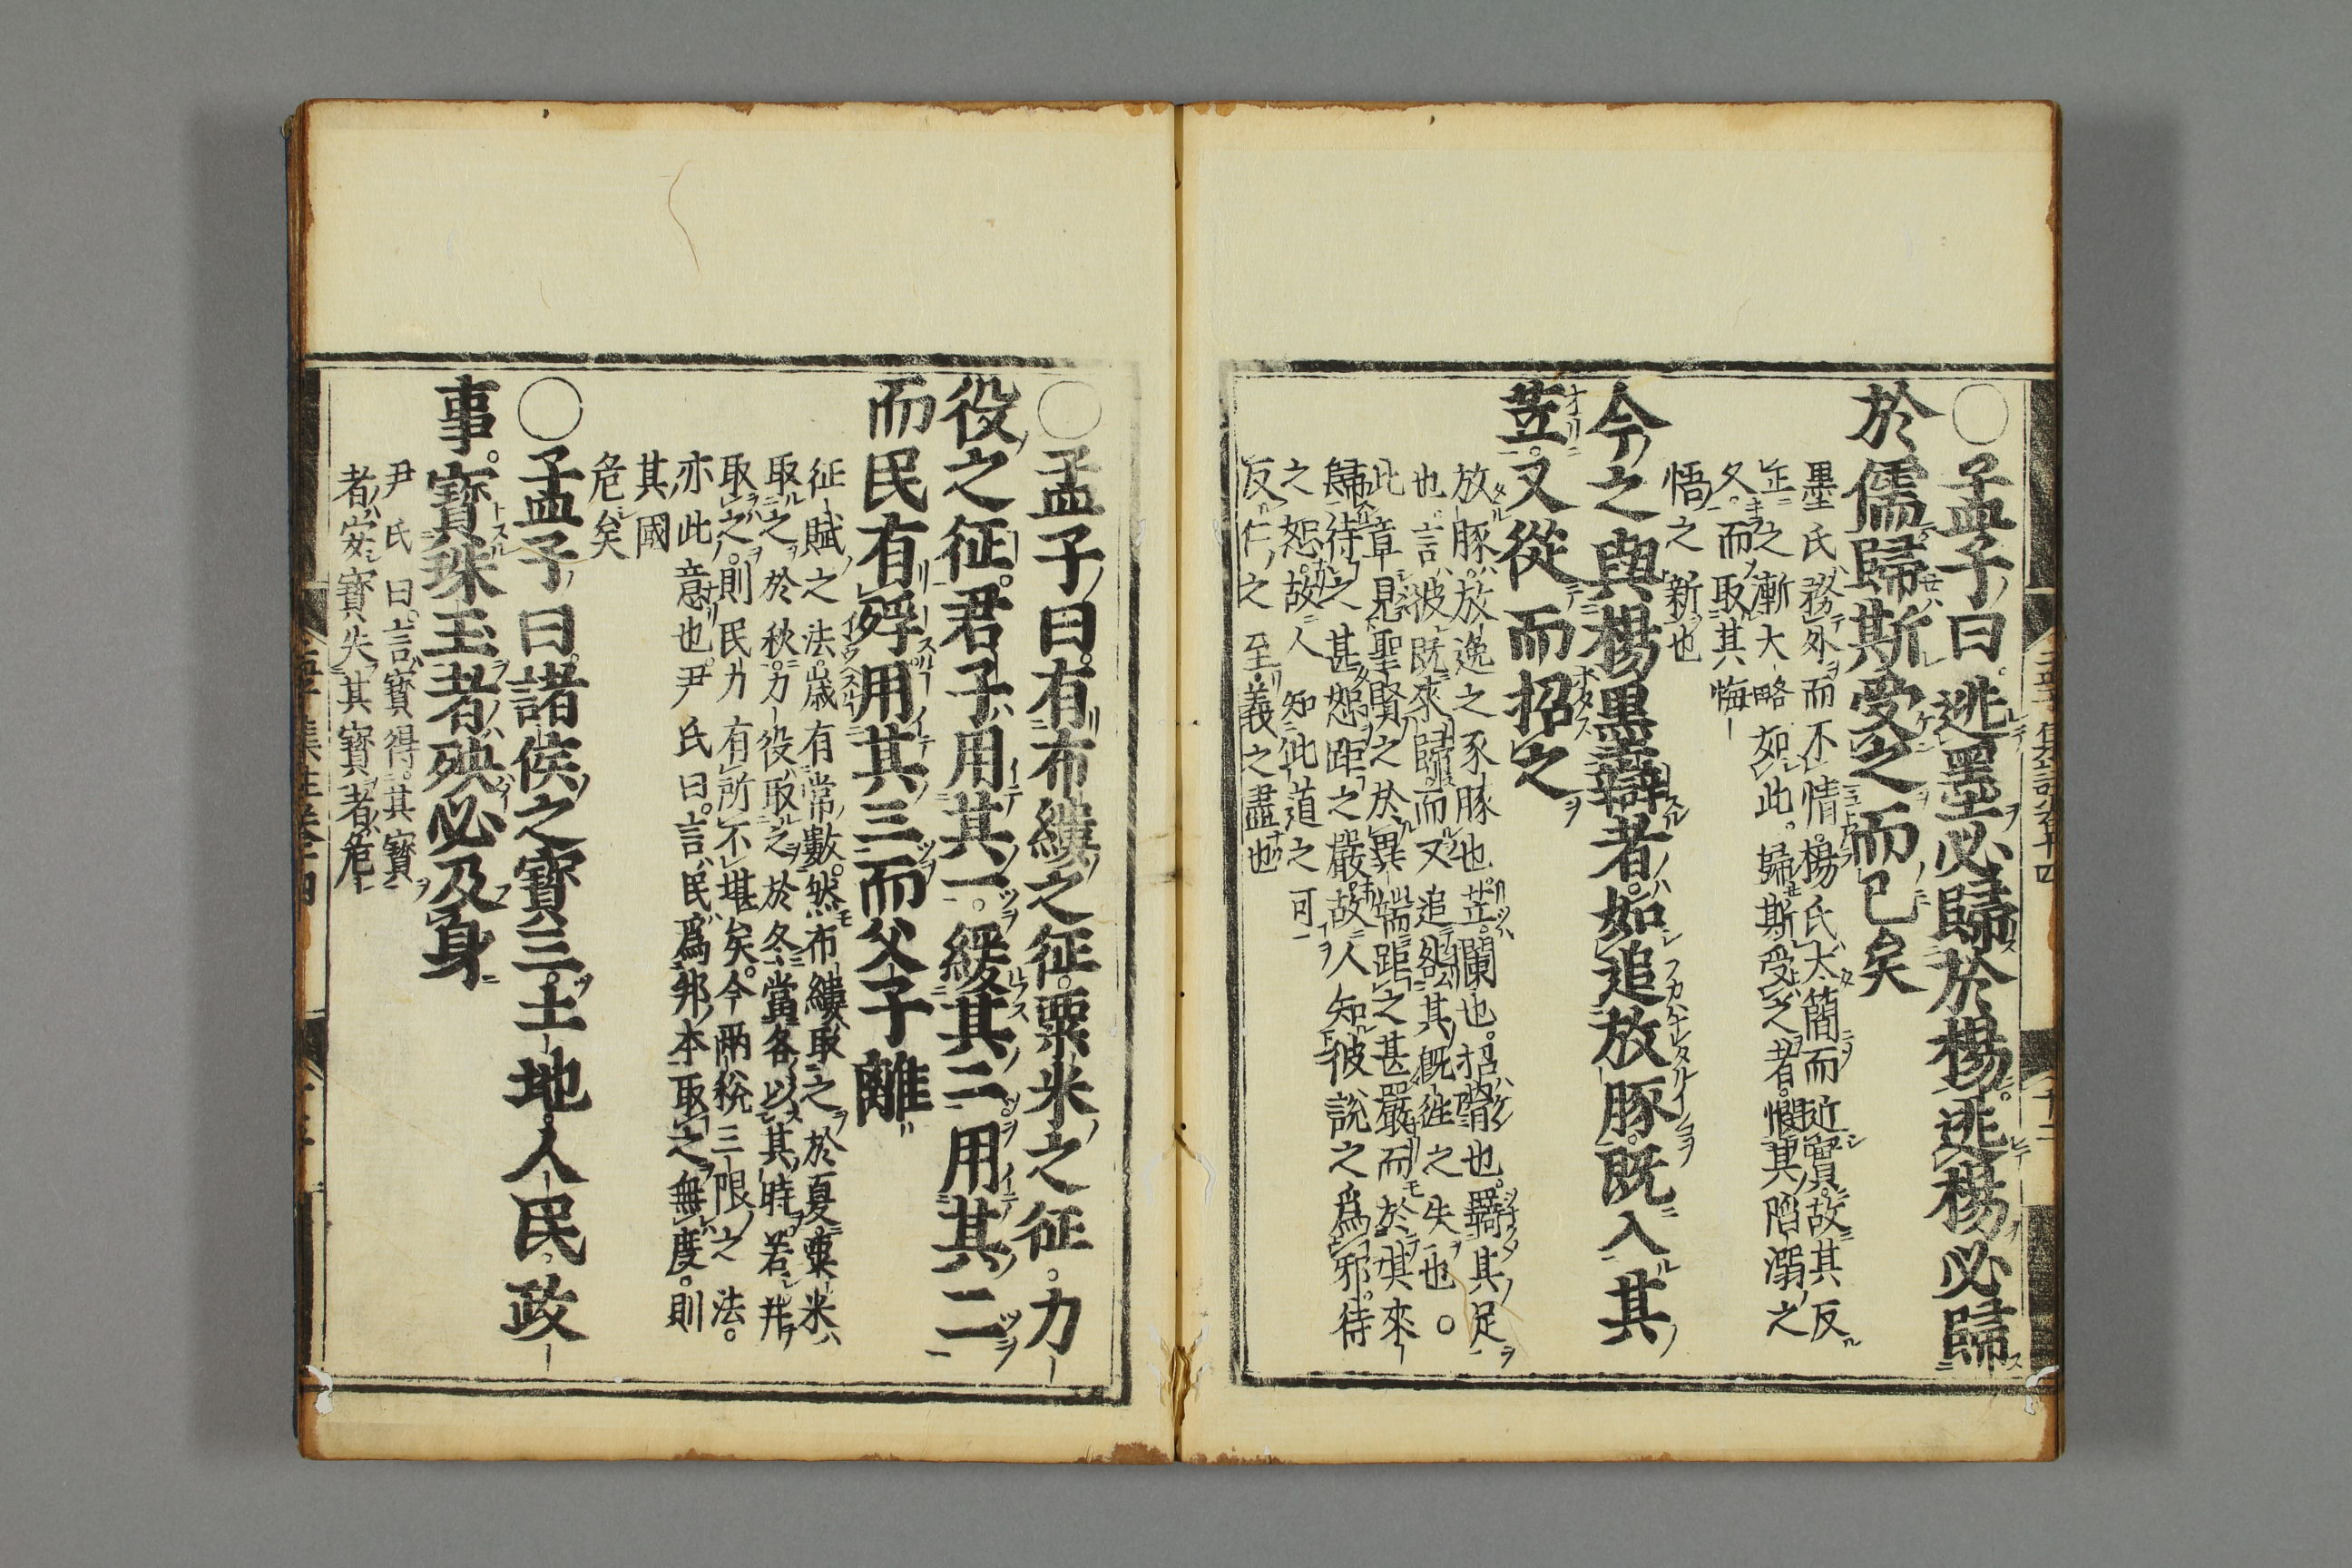 ○孟子曰。逃墨必歸於楊。逃楊必歸
於儒。歸斯受之而已矣
墨氏務外而不情。楊氏太簡而近實。故其反
正之漸大略如此。歸斯受之者。憫其陷溺之
久。而取其悔
悟之新也
今之與楊墨辯者。如追放豚。既入其
苙。又從而招之
放豚。放逸之豕豚也。苙。闌也。招。罥也。羈其足
也。言彼既來歸。而又追咎其既往之失也。○
此章見聖賢之於異端。距之甚嚴。而於其來
歸。待之甚恕。距之嚴。故人知彼說之爲邪。待
之恕。故人知此道之可
反。仁之至。義之盡也
○孟子曰。有布縷之征。粟米之征。力
役之征。君子用其一。緩其二。用其二
而民有殍。用其三而父子離
征賦之法。歲有常數。然布縷取之於夏。粟米
取之於秋。力役取之於冬。當各以其時。若幷
取之。則民力有所不堪矣。今兩稅三限之法。
亦此意也。尹氏曰。言民爲邦本。取之無度。則
其國
危矣
○孟子曰。諸侯之寶三。土地。人民。政
事。寶珠玉者。殃必及身
尹氏曰。言寶得其寶
者安。寶失其寶者危